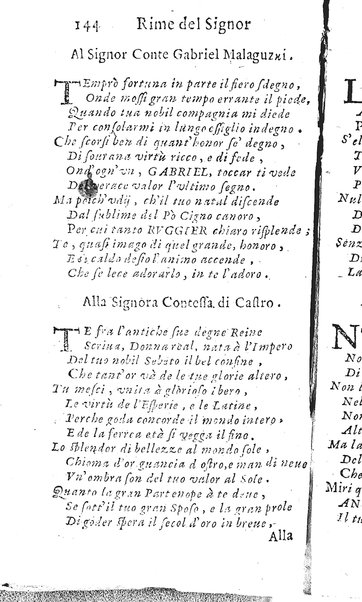 144 Rime del Signor
Al Signor Conte Gabriel Malaguzzi.
TEmprò fortuna in parte il fiero sdegno,
Onde mossi gran tempo errante il piede,
Quando tua nobil compagnia mi diede
Per consolarmi in lungo essiglio indegno.
Che scorsi ben di quant'honor se' degno,
Di sourana virtù ricco, e di fede,
Ond'ogn'vn, GABRIEL, toccar ti vede
verace valor l'vltimo segno.
Ma poich'vdij, ch'il tuo natal discende
Dal sublime del Pò Cigno canoro,
Per cui tanto RVGGIER chiaro risplende;
Te, quasi imago di quel grande, honoro,
E di caldo desio l'animo accende,
Che se lece adorarlo, in te l'adoro.
Alla Signora Contessa di Castro.
TE fra l'antiche sue degne Reine
Scriua, Donna real, nata à l'Impero
Del tuo nobil Sebeto il bel confine,
Che tant'or và de le tue glorie altero,
Tu mesci, vnita à glorioso ibero,
Le virtù de l'Esperie, e le Latine,
Perche goda concorde il mondo intero,
E de la ferrea età si vegga il fine.
Lo splendor di bellezze al mondo sole,
Chioma d'or guancia d'ostro, e man di neue
Vn'ombra son del tuo valor al Sole.
Quanto la gran Partenope à te deue,
Se sott'il tuo gran Sposo, e la gran prole
Di goder spera il secol d'oro in breue.
Alla